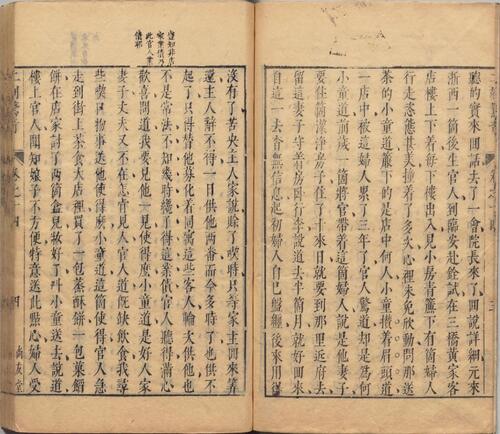 聽的實來回話去了一會院長來了回說詳細元來
浙西一箇後生官人到臨安赴銓試在三橋黃家客
店樓上下着每下樓出入見小房青簾下有箇婦人
行走恣態甚美撞着了多次心裡未免欣動問那送
茶的小童道簾下的是店中何人小童攢着眉頭道
一店中被這婦人累了三年了官人驚道却是為何
小童道前歲一箇將官帶着這箇婦人說是他妻子
要住箇潔淨房子住了十來日就要到那里近府去
留這妻子守着房臥行李說道去半箇月就好回來
自這一去杳無信息起初婦人自己盤纏後來用得
豈知非店
家業債乃
此官人業
債耶
沒有了苦央主人家說賒了喫時只等家主回來筭
還主人辭不得一日供他兩番而今多時了也供不
起了只得替他募化着同寓這些客人輪次供他也
不是常法不知幾時纔了得這業債官人聽得滿心
歡喜問道我要見他一見使得麼小童道是好人家
妻子丈夫又不在怎肯見人官人道既缺飲食我尋
些喫口物事送他使得麼小童道這箇使得官人急
走到街上茶食大店裡買了一包蒸酥餅一包菓餡
餅在店家討了兩箇盒兒妝好了叫小童送去說道
樓上官人聞知娘子不方便特意送此點心婦人受
二刻驚奇 卷之十四 四 尚友堂